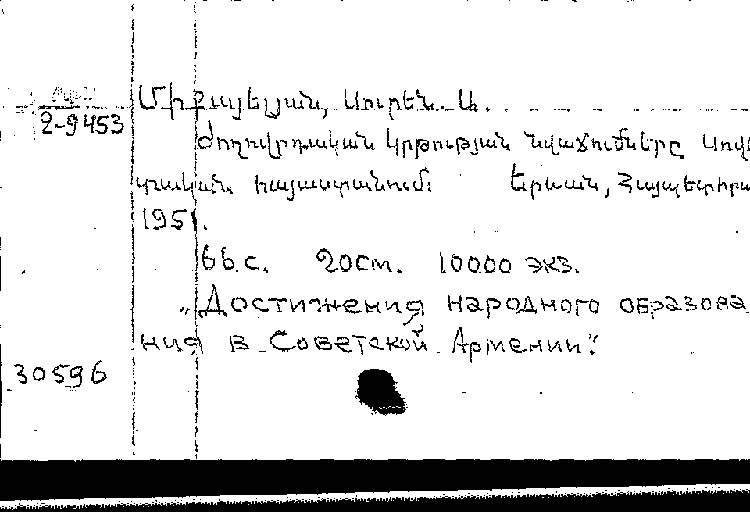 Միքայելյան, Սուրեն Ա.
2-9453
Ժողովրդական կրթության նվաճումները Սովե
տական Հայաստանում. Երևան, Հայպետհրա
1951.
66 с. 20 см. 10000 экз.
„Достижения народного образова
ния в Советской Армении".
30596